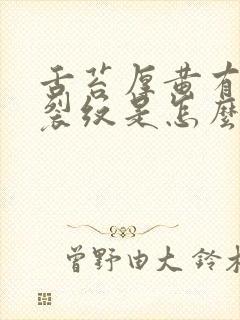 舌苔厚黄有
裂纹是怎麼
曾野由大 鈴木